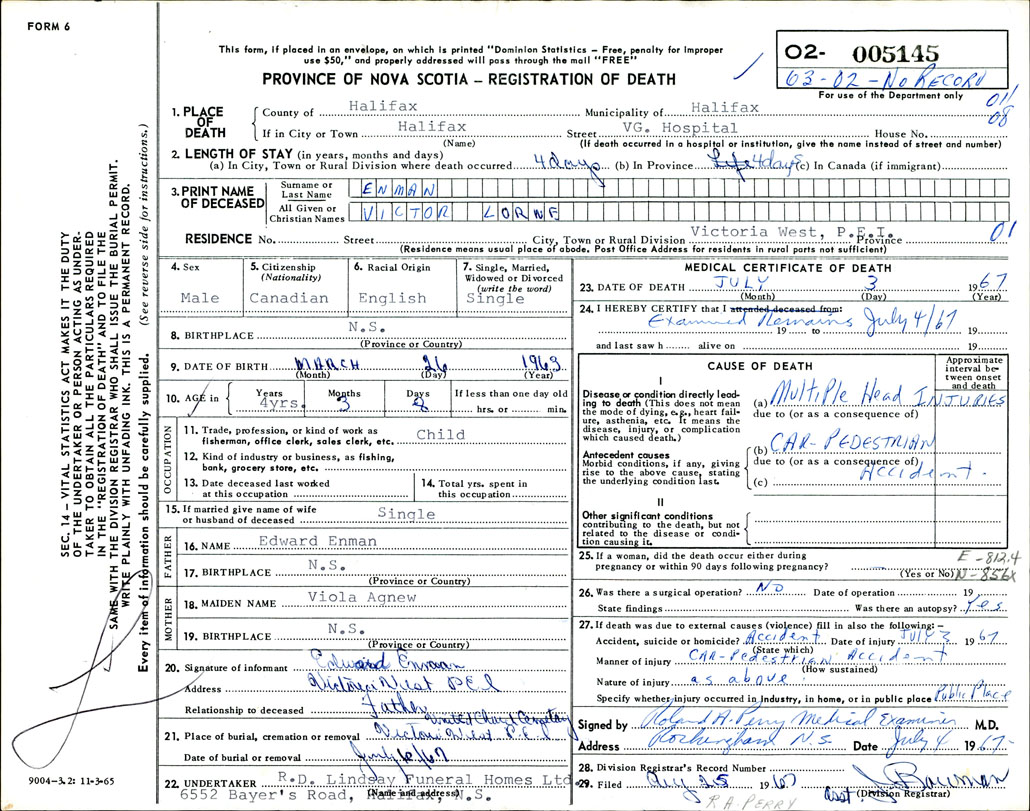 FORM 6
This form, if placed in an envelope, on which is printed "Dominion Statistics – Free, penalty for improper
use $50," and properly addressed will pass through the mail "FREE"
PROVINCE OF NOVA SCOTIA – REGISTRATION OF DEATH
02- 005145
03-02-No RECORD
For use of the Department only
011
08
SEC. 14 – VITAL STATISTICS ACT MAKES IT THE DUTY
OF THE UNDERTAKER OR PERSON ACTING AS UNDER-
TAKER TO OBTAIN ALL THE PARTICULARS REQUIRED
IN THE "REGISTRATION OF DEATH" AND TO FILE THE
SAME WITH THE DIVISION REGISTRAR WHO SHALL ISSUE THE BURIAL PERMIT.
WRITE PLAINLY WITH UNFADING INK. THIS IS A PERMANENT RECORD.
Every item of information should be carefully supplied. (See reverse side for instructions.)
1. PLACE OF DEATH
County of Halifax Municipality of Halifax
If in City or Town Halifax Street VG. Hospital House No.
(Name) (If death occurred in a hospital or institution, give the name instead of street and number)
2. LENGTH OF STAY (in years, months and days)
(a) In City, Town or Rural Division where death occurred 4 days (b) In Province Life 4 days (c) In Canada (if immigrant)
3. PRINT NAME OF DECEASED
Surname or Last Name ENMAN
All Given or Christian Names VICTOR LORNE
RESIDENCE No. Street City, Town or Rural Division Victoria West, P.E.I. Province 01
(Residence means usual place of abode. Post Office Address for residents in rural parts not sufficient)
4. Sex Male
5. Citizenship (Nationality) Canadian
6. Racial Origin English
7. Single, Married, Widowed or Divorced (write the word) Single
8. BIRTHPLACE N.S.
(Province or Country)
9. DATE OF BIRTH MARCH 26 1963
(Month) (Day) (Year)
10. AGE in Years 4yrs. Months 3 Days 8 If less than one day old hrs. or min.
OCCUPATION
11. Trade, profession, or kind of work as fisherman, office clerk, sales clerk, etc. Child
12. Kind of industry or business, as fishing, bank, grocery store, etc.
13. Date deceased last worked at this occupation
14. Total yrs. spent in this occupation
15. If married give name of wife or husband of deceased Single
FATHER
16. NAME Edward Enman
17. BIRTHPLACE N.S.
(Province or Country)
MOTHER
18. MAIDEN NAME Viola Agnew
19. BIRTHPLACE N.S.
(Province or Country)
20. Signature of informant Edward Enman
Address Victoria West P.E.I
Relationship to deceased Father
United Church Cemetery
21. Place of burial, cremation or removal Victoria West P.E.I
Date of burial or removal July 6/67
22. UNDERTAKER R.D. Lindsay Funeral Homes Ltd.
(Name and address)
6552 Bayer's Road, Halifax, N.S.
9004-3.2: 11-3-65
MEDICAL CERTIFICATE OF DEATH
23. DATE OF DEATH JULY 3 1967
(Month) (Day) (Year)
24. I HEREBY CERTIFY that I attended deceased from:
Examined Remains July 4/67
19 to 19
and last saw h alive on 19
CAUSE OF DEATH
Approximate interval between onset and death
I
Disease or condition directly leading to death (This does not mean the mode of dying, e.g., heart failure, asthenia, etc. It means the disease, injury, or complication which caused death.)
(a) Multiple Head INJURIES
due to (or as a consequence of)
Antecedent causes
Morbid conditions, if any, giving rise to the above cause, stating the underlying condition last.
(b) CAR-PEDESTRIAN
due to (or as a consequence of)
Accident.
(c)
II
Other significant conditions contributing to the death, but not related to the disease or condition causing it.
25. If a woman, did the death occur either during pregnancy or within 90 days following pregnancy?
(Yes or No)
E-812.4
N-856X
26. Was there a surgical operation? NO Date of operation 19
State findings Was there an autopsy? Yes
27. If death was due to external causes (violence) fill in also the following:–
Accident, suicide or homicide? Accident Date of injury JULY 3 1967
(State which)
Manner of injury CAR-Pedestrian Accident
(How sustained)
Nature of injury as above
Specify whether injury occurred in industry, in home, or in public place Public Place
Signed by Roland A. Perry Medical Examiner M.D.
Address Rockingham N.S. Date July 4 1967
28. Division Registrar's Record Number
29. Filed Aug 25 1967 J. Bauman
Asst. (Division Registrar)
R.A. PERRY